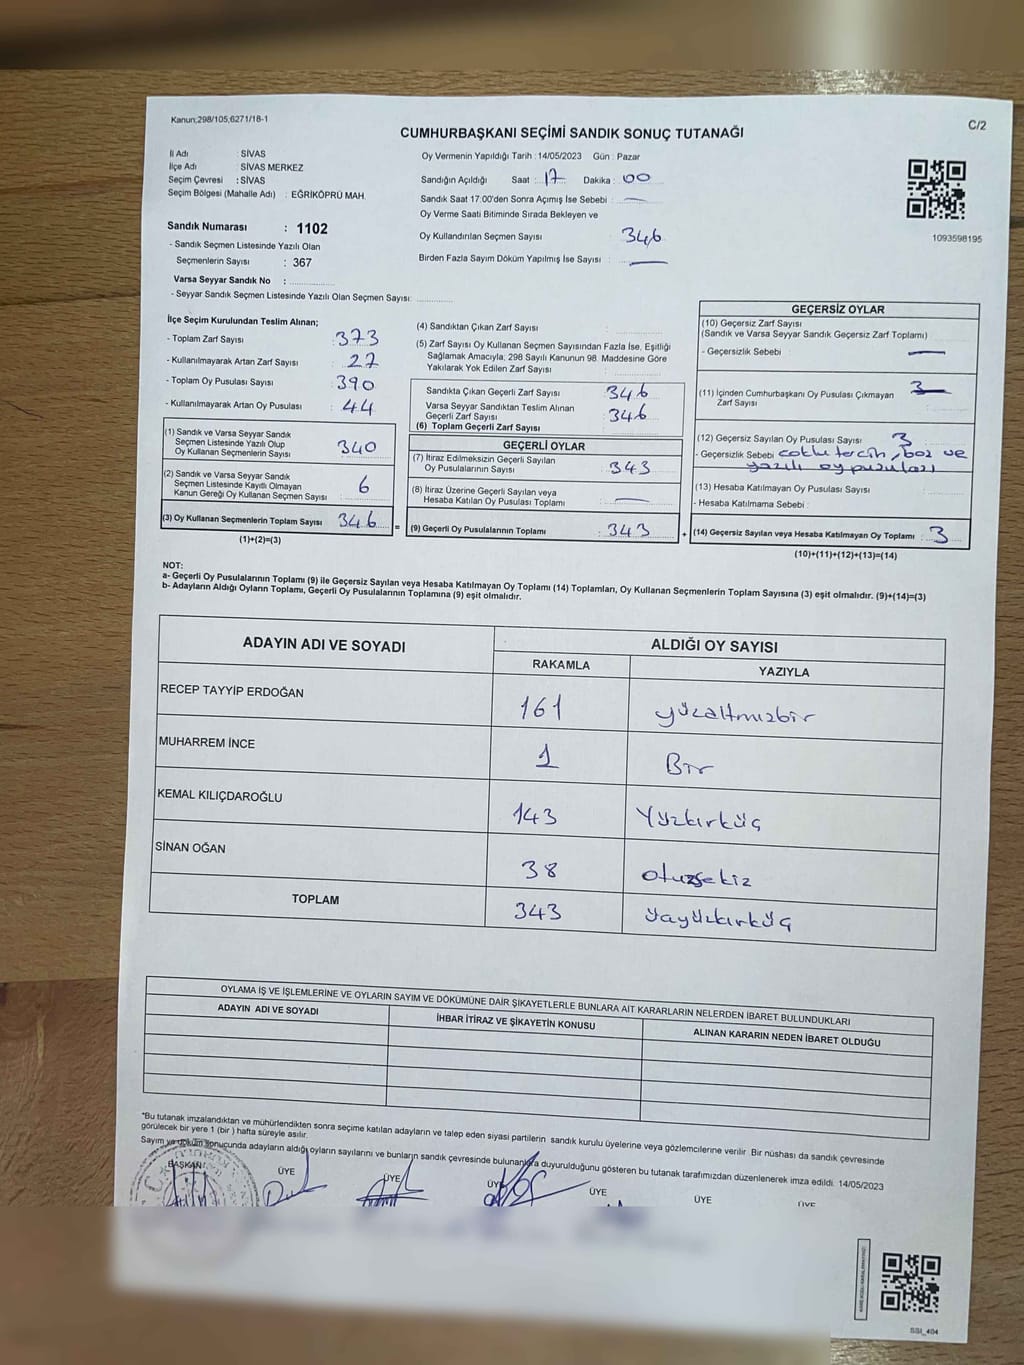 Kanun;298/105,6271/18-1
C/2
CUMHURBAŞKANI SEÇİMİ SANDIK SONUÇ TUTANAĞI
İl Adı : SİVAS
İlçe Adı : SİVAS MERKEZ
Seçim Çevresi : SİVAS
Seçim Bölgesi (Mahalle Adı) : EĞRİKÖPRÜ MAH.
Sandık Numarası : 1102
- Sandık Seçmen Listesinde Yazılı Olan
Seçmenlerin Sayısı : 367
Varsa Seyyar Sandık No :
- Seyyar Sandık Seçmen Listesinde Yazılı Olan Seçmen Sayısı:
Oy Vermenin Yapıldığı Tarih : 14/05/2023 Gün : Pazar
Sandığın Açıldığı Saat : 17 Dakika : 00
Sandık Saat 17:00'den Sonra Açımış İse Sebebi : —
Oy Verme Saati Bitiminde Sırada Bekleyen ve
Oy Kullandırılan Seçmen Sayısı : 346
Birden Fazla Sayım Döküm Yapılmış İse Sayısı : —
1093598195
İlçe Seçim Kurulundan Teslim Alınan;
- Toplam Zarf Sayısı : 373
- Kullanılmayarak Artan Zarf Sayısı : 27
- Toplam Oy Pusulası Sayısı : 390
- Kullanılmayarak Artan Oy Pusulası : 44
(1) Sandık ve Varsa Seyyar Sandık
Seçmen Listesinde Yazılı Olup
Oy Kullanan Seçmenlerin Sayısı : 340
(2) Sandık ve Varsa Seyyar Sandık
Seçmen Listesinde Kayıtlı Olmayan
Kanun Gereği Oy Kullanan Seçmen Sayısı : 6
(3) Oy Kullanan Seçmenlerin Toplam Sayısı : 346
(1)+(2)=(3)
(4) Sandıktan Çıkan Zarf Sayısı :
(5) Zarf Sayısı Oy Kullanan Seçmen Sayısından Fazla İse, Eşitliği
Sağlamak Amacıyla; 298 Sayılı Kanunun 98. Maddesine Göre
Yakılarak Yok Edilen Zarf Sayısı :
Sandıkta Çıkan Geçerli Zarf Sayısı : 346
Varsa Seyyar Sandıktan Teslim Alınan
Geçerli Zarf Sayısı : 346
(6) Toplam Geçerli Zarf Sayısı :
GEÇERLİ OYLAR
(7) İtiraz Edilmeksizin Geçerli Sayılan
Oy Pusulalarının Sayısı : 343
(8) İtiraz Üzerine Geçerli Sayılan veya
Hesaba Katılan Oy Pusulası Toplamı : —
= (9) Geçerli Oy Pusulalarının Toplamı : 343
GEÇERSİZ OYLAR
(10) Geçersiz Zarf Sayısı
(Sandık ve Varsa Seyyar Sandık Geçersiz Zarf Toplamı)
- Geçersizlik Sebebi : —
(11) İçinden Cumhurbaşkanı Oy Pusulası Çıkmayan
Zarf Sayısı : 3
(12) Geçersiz Sayılan Oy Pusulası Sayısı : 3
- Geçersizlik Sebebi : çoklu tercih, boş ve
yazılı oy pusulası
(13) Hesaba Katılmayan Oy Pusulası Sayısı :
- Hesaba Katılmama Sebebi :
+ (14) Geçersiz Sayılan veya Hesaba Katılmayan Oy Toplamı : 3
(10)+(11)+(12)+(13)=(14)
NOT:
a- Geçerli Oy Pusulalarının Toplamı (9) ile Geçersiz Sayılan veya Hesaba Katılmayan Oy Toplamı (14) Toplamları, Oy Kullanan Seçmenlerin Toplam Sayısına (3) eşit olmalıdır. (9)+(14)=(3)
b- Adayların Aldığı Oyların Toplamı, Geçerli Oy Pusulalarının Toplamına (9) eşit olmalıdır.
ADAYIN ADI VE SOYADI
ALDIĞI OY SAYISI
RAKAMLA YAZIYLA
RECEP TAYYİP ERDOĞAN 161 yüzaltmışbir
MUHARREM İNCE 1 Bir
KEMAL KILIÇDAROĞLU 143 Yüzkırküç
SİNAN OĞAN 38 otuzsekiz
TOPLAM 343 üçyüzkırküç
OYLAMA İŞ VE İŞLEMLERİNE VE OYLARIN SAYIM VE DÖKÜMÜNE DAİR ŞİKAYETLERLE BUNLARA AİT KARARLARIN NELERDEN İBARET BULUNDUKLARI
ADAYIN ADI VE SOYADI İHBAR İTİRAZ VE ŞİKAYETİN KONUSU ALINAN KARARIN NEDEN İBARET OLDUĞU
"Bu tutanak imzalandıktan ve mühürlendikten sonra seçime katılan adayların ve talep eden siyasi partilerin sandık kurulu üyelerine veya gözlemcilerine verilir Bir nüshası da sandık çevresinde
görülecek bir yere 1 (bir ) hafta süreyle asılır.
Sayım ve döküm sonucunda adayların aldığı oyların sayılarını ve bunların sandık çevresinde bulunanlara duyurulduğunu gösteren bu tutanak tarafımızdan düzenlenerek imza edildi. 14/05/2023
BAŞKAN ÜYE ÜYE ÜYE ÜYE ÜYE ÜYE
SSI_404